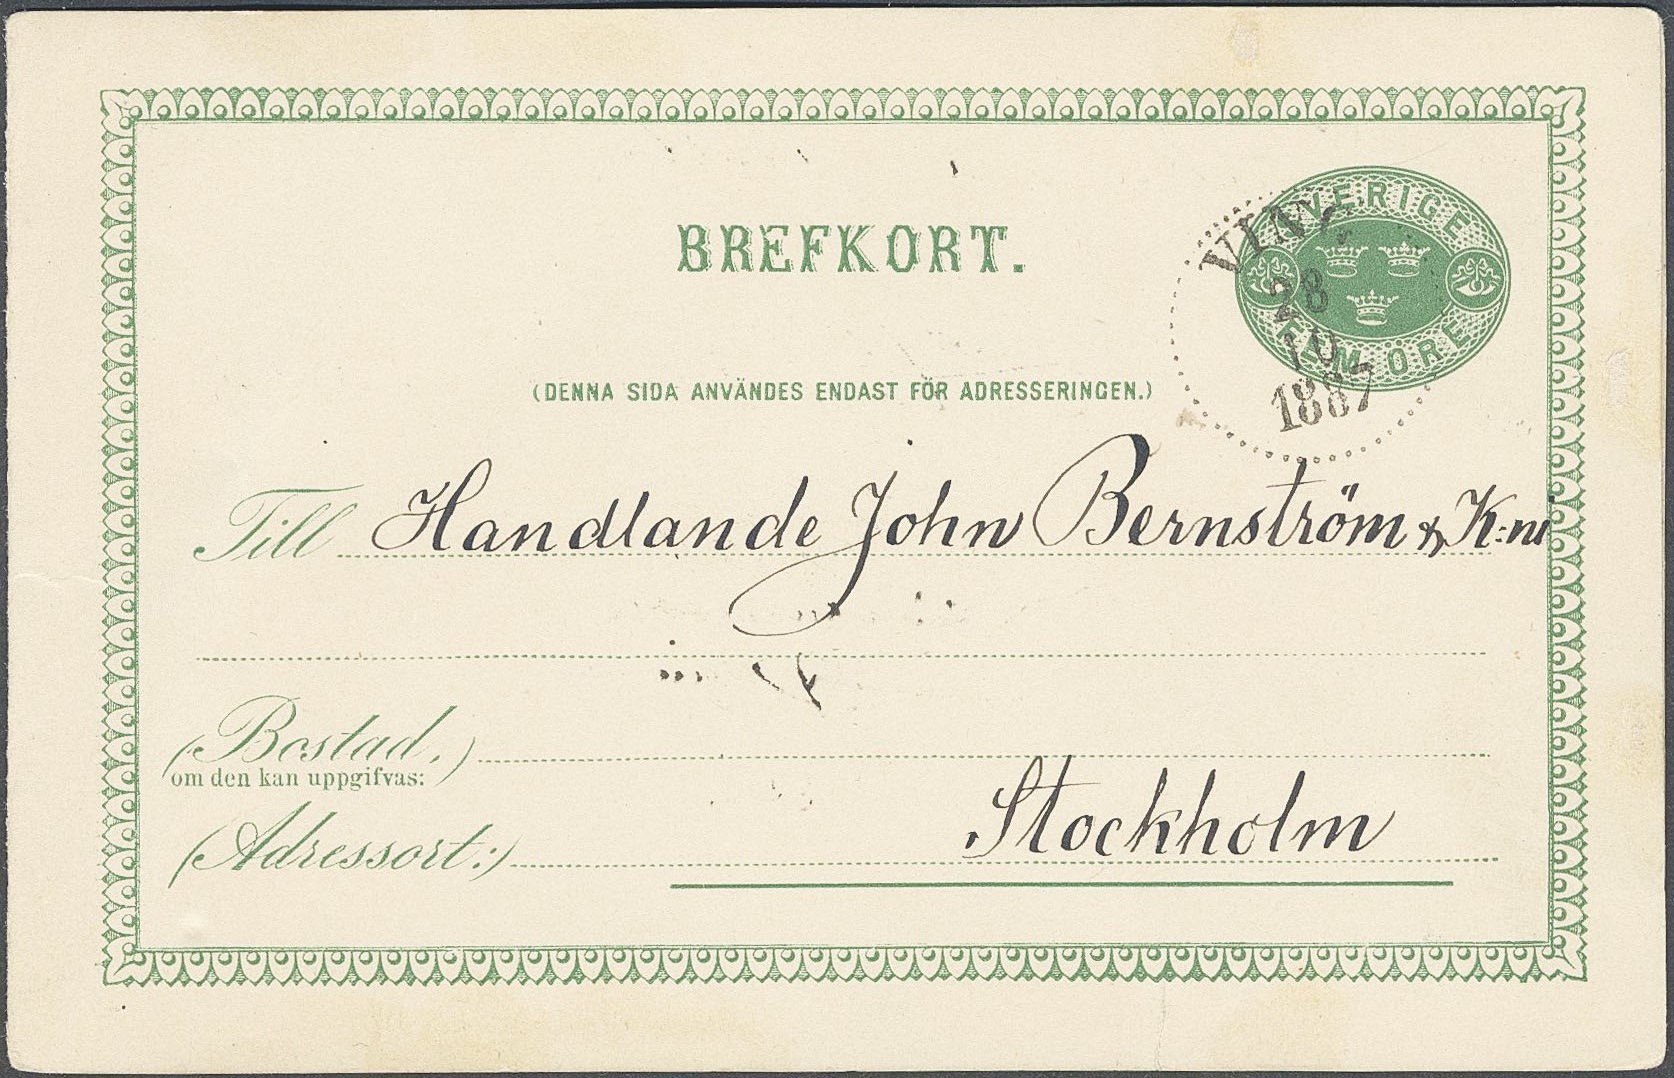 BREFKORT.
SVERIGE
FEM ÖRE
28
10
1887
(DENNA SIDA ANVÄNDES ENDAST FÖR ADRESSERINGEN.)
Till Handlande John Bernström & K:ni
(Bostad.)
om den kan uppgifvas:
(Adressort:) Stockholm